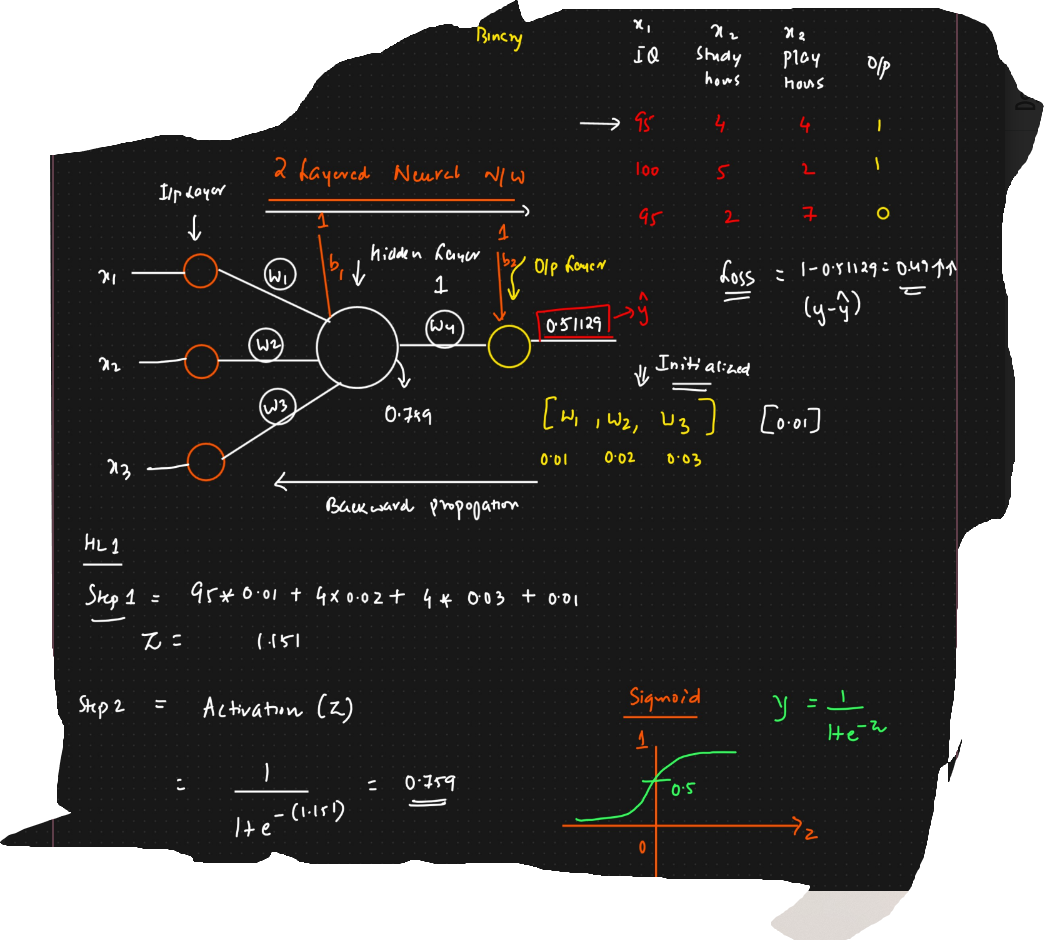 Binary
x₁ x₂ x₂
IQ Study hours Play hours O/P
→ 95 4 4 1
100 5 2 1
95 2 7 0
2 Layered Neural N/W
I/p Layer
1 1
b₁ b₂
hidden Layer
1
O/p Layer
x₁ w₁
x₂ w₂ w₄ 0.51129 → ŷ
x₃ w₃
0.759
Loss = 1-0.51129 = 0.49 ↑↑
(y-ŷ)
Initialized
[w₁, w₂, w₃] [0.01]
0.01 0.02 0.03
Backward propogation
HL1
Step 1 = 95*0.01 + 4x0.02 + 4 * 0.03 + 0.01
Z = 1.151
Step 2 = Activation (Z)
= 1 / 1+e^-(1.151) = 0.759
Sigmoid
y = 1 / 1+e^-z
1
0.5
0
z